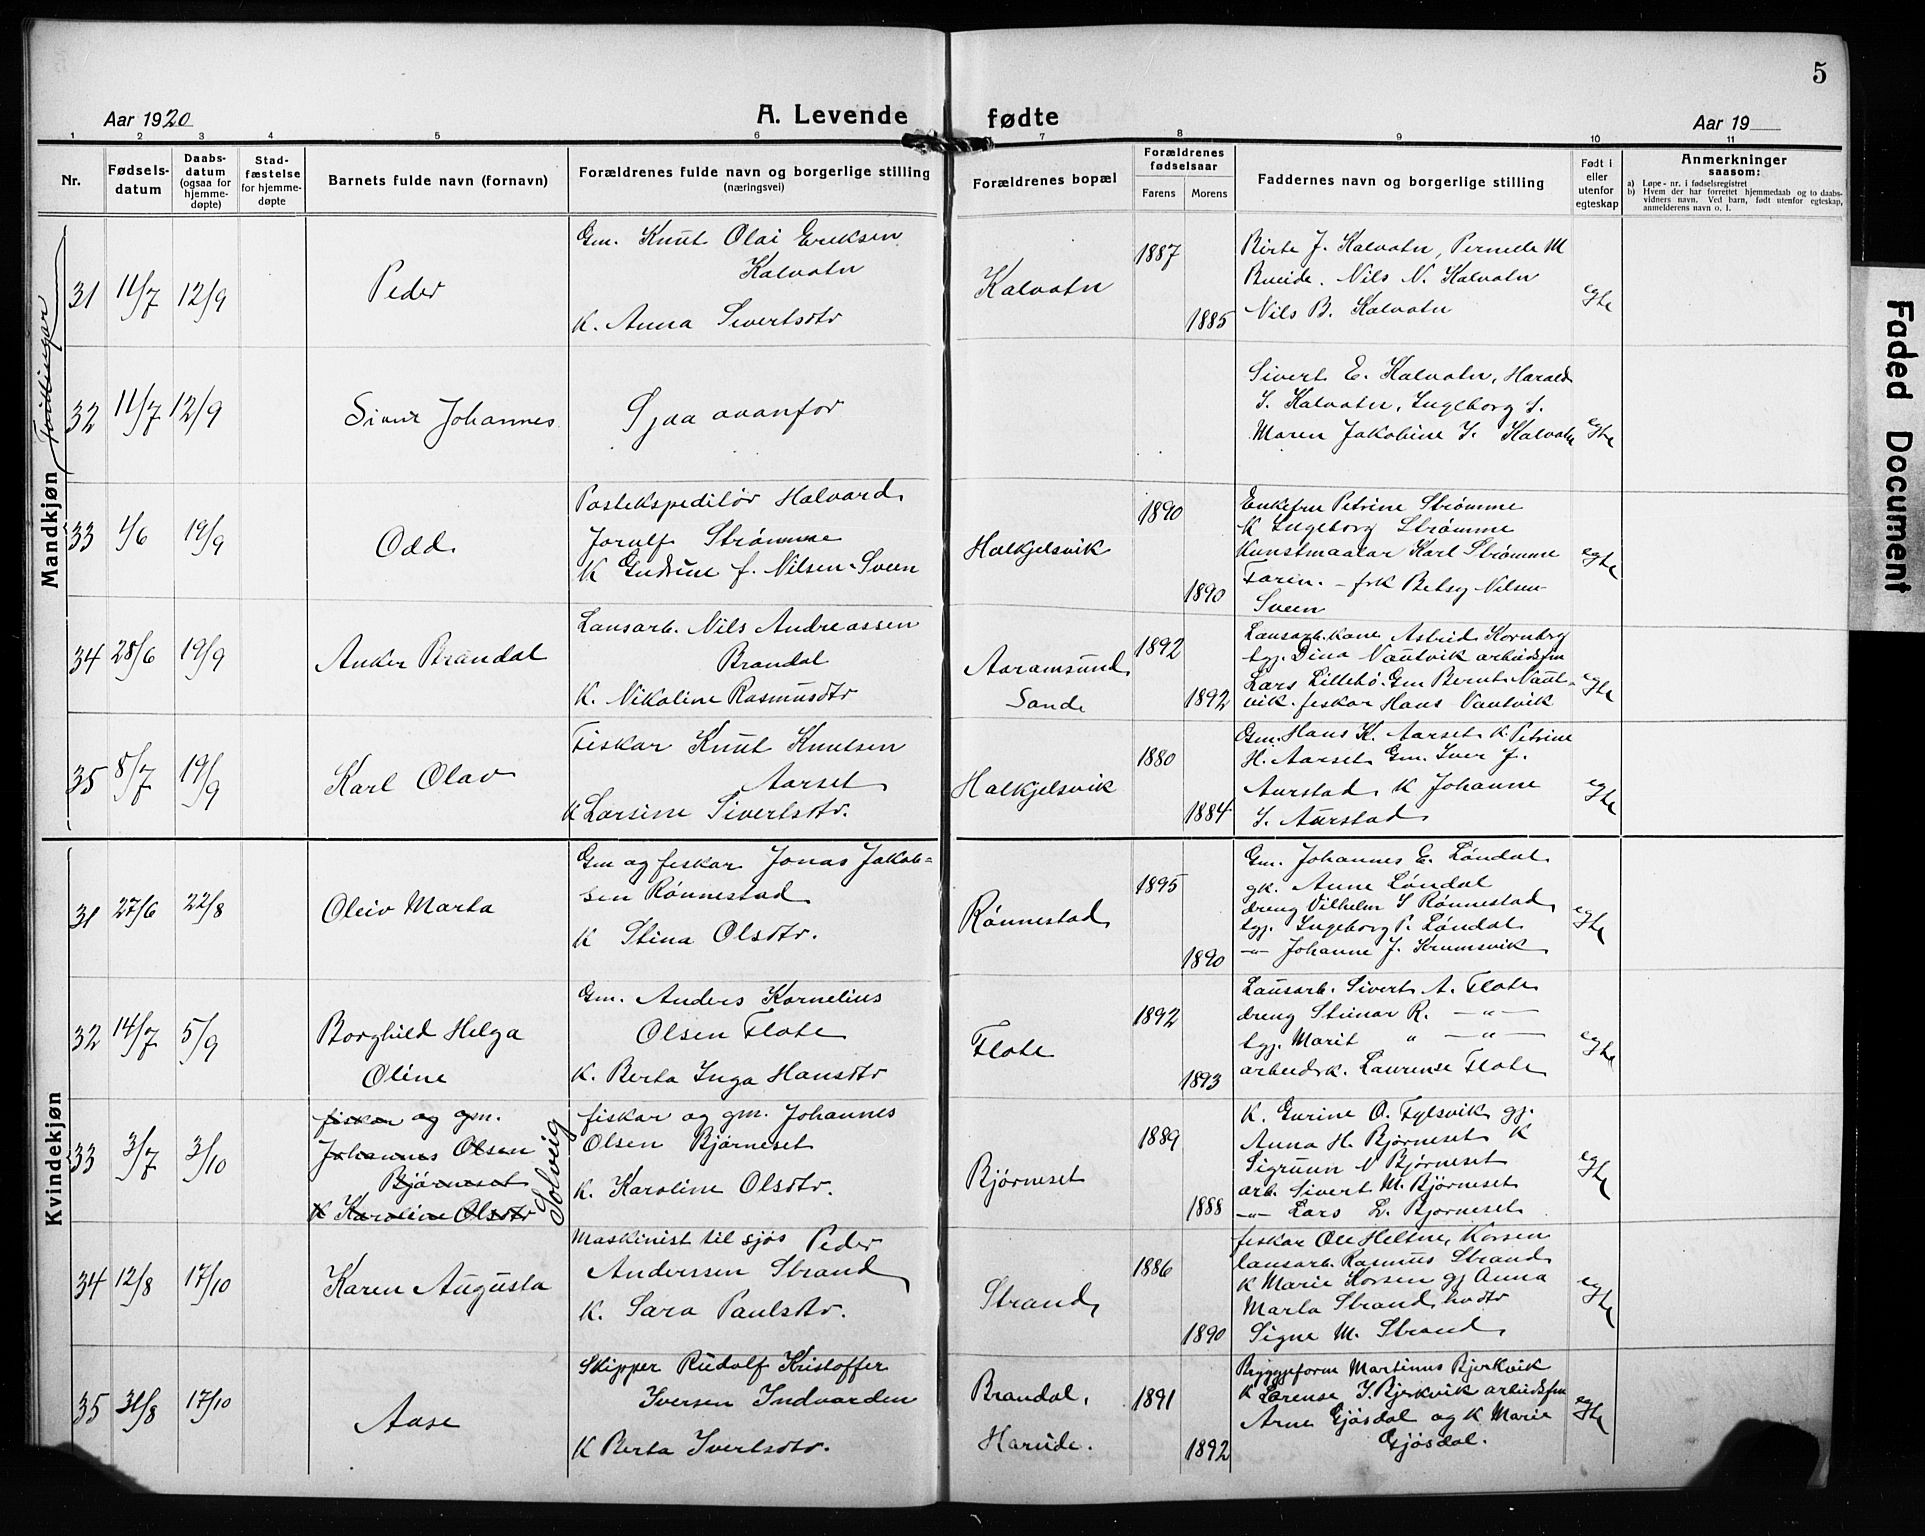 5
Aar 1920
A. Levende fødte
Aar 19
1 2 3 4 5 6 7 8 9 10 11
Nr.
Fødsels-
datum
Daabs-
datum
(ogsaa for
hjemme-
døpte)
Stad-
fæstelse
for hjemme-
døpte
Barnets fulde navn (fornavn)
Forældrenes fulde navn og borgerlige stilling
(næringsvei)
Forældrenes bopæl
Forældrenes
fødselsaar
Farens Morens
Faddernes navn og borgerlige stilling
Født i
eller
utenfor
egteskap
Anmerkninger
saasom:
a) Løpe-nr. i fødselsregistret
b) Hvem der har forrettet hjemmedaab og to daabs-
vidners navn. Ved barn, født utenfor egteskap,
anmelderens navn o. l.
Mandkjøn
Tvillinger
31 11/7 12/9
Peder
Gm. Knut Olai Eriksen
Kalvatn
K. Anna Sivertsdtr
Kalvatn
1887
1885
Birte J. Kalvatn, Pernele M
Bueide. Nils N. Kalvatn
Nils B. Kalvatn
egte
32 11/7 12/9
Sivur Johannes
Sjaa ovanfor
Sivert E. Kalvatn, Harald
S. Kalvatn, Ingeborg S.
Maren Jakobine S. Kalvatn
egte
33 1/6 19/9
Odd
Postekspeditör Halvard
Jorulf Strømme
K Gudrun f. Nilsen-Sveen
Halkjelsvik
1890
1890
Enkefru Petrine Strømme
K Ingeborg Strømme
Kunstmaalar Karl Strømme
Farin. - frk Betsy Nilsen-
Sveen
egte
34 28/6 19/9
Anker Brandal
Lausarb. Nils Andreassen
Brandal
K. Nikoline Rasmusdtr
Aaramsund
Sande
1892
1892
Lausarb.kane Astrid Kornberg
tgj. Dina Vautvik arbeidsfm
Lars Lillebö. Gm Bernt Vaut-
vik. fiskar Hans Vautvik
egte
35 8/7 19/9
Karl Olav
Fiskar Knut Knutsen
Aarset
K Larsine Sivertsdtr.
Halkjelsvik
1880
1884
Gm. Hans K. Aarset K Petrine
H. Aarset Gm. Iver J.
Aurstad K Johanne
S. Aurstad
egte
Kvindekjøn
31 27/6 22/8
Oleiv Marta
Gm og fiskar Jonas Jakob-
sen Rönnestad
K Stina Olsdtr.
Rönnestad
1895
1890
Gm. Johannes E. Löndal
gk. Anne Löndal
dreng Vilhelm S Rönnestad
tgj. Ingeborg P. Löndal
-"- Johanne J. Krumsvik
egte
32 14/7 5/9
Borghild Helga
Oline
Gm. Anders Kornelius
Olsen Flote
K. Berta Inga Hansdtr
Flote
1892
1893
Lausarb. Sivert A. Flote
dreng Steinar R. -"-
tgj. Marit " -"-
arbeidsk. Laurense Flote
egte
33 3/7 3/10
fiskar og gm.
Johannes Olsen
Bjørneset
K Karoline Olsdtr
Solveig
fiskar og gm. Johannes
Olsen Bjørneset
K. Karoline Olsdtr.
Bjørneset
1889
1888
K. Gurine O. Fylsvik gj.
Anna H. Bjørneset K
Sigrunn N Bjørneset
arb. Sivert M. Bjørneset
-"- Lars L. Bjørneset
egte
34 12/8 17/10
Karen Augusta
Maskinist til sjøs Peder
Anderssen Strand
K. Sara Paulsdtr.
Strand
1886
1890
fiskar Ole Heltne, Korsen
lausarb. Rasmus Strand
K Marie Korsen gj Anna
Marta Strand
Signe M. Strand
egte
35 31/8 17/10
Aase
Skipper Rudolf Kristoffer
Iversen Indvarden
K Berta Ivertsdtr.
Brandal,
Hareide.
1891
1892
Byggjeform Martinus Bjerkvik
K Lorense S. Bjerkvik arbeidsfm
Arne Gjösdal og K Marie
Gjösdal.
egte
Faded Document